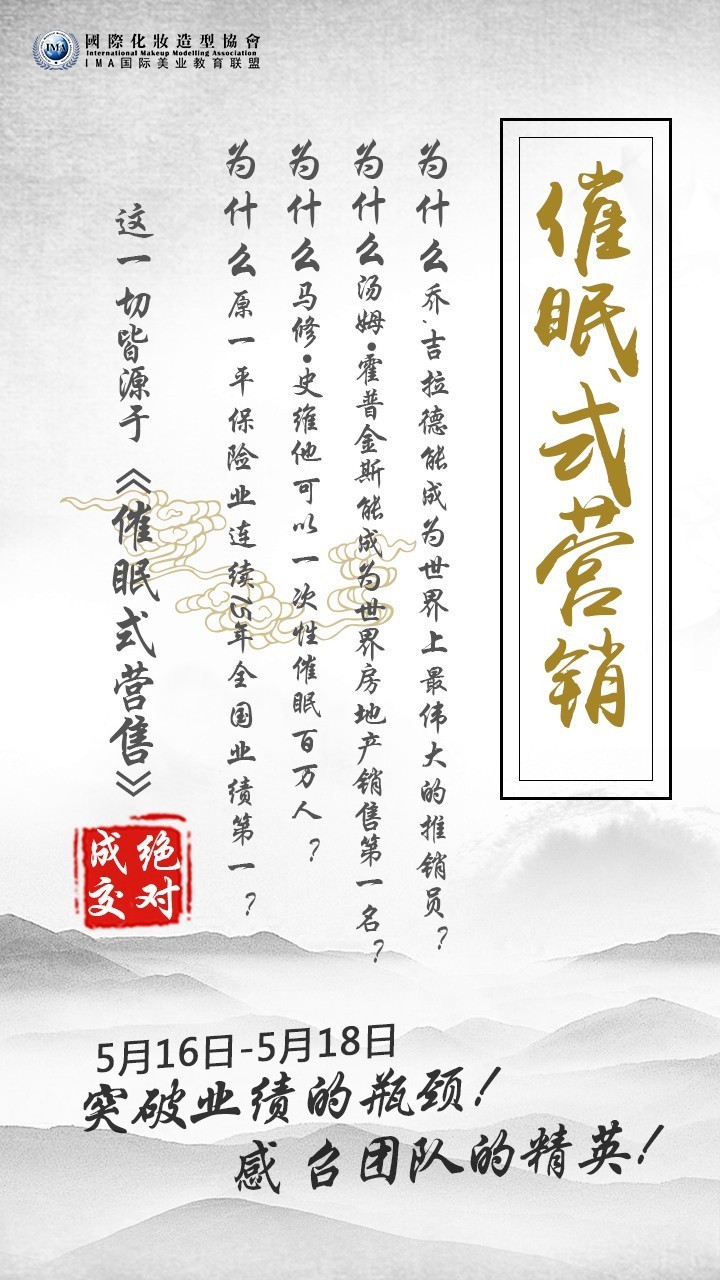 國際化妝造型協會
International Makeup Modelling Association
IMA国际美业教育联盟
IMA
催眠式营销
为什么乔·吉拉德能成为世界上最伟大的推销员？
为什么汤姆·霍普金斯能成为世界房地产销售第一名？
为什么马修·史维他可以一次性催眠百万人？
为什么原一平保险业连续15年全国业绩第一？
这一切皆源于《催眠式营售》
绝对
成交
5月16日-5月18日
突破业绩的瓶颈！
感召团队的精英！